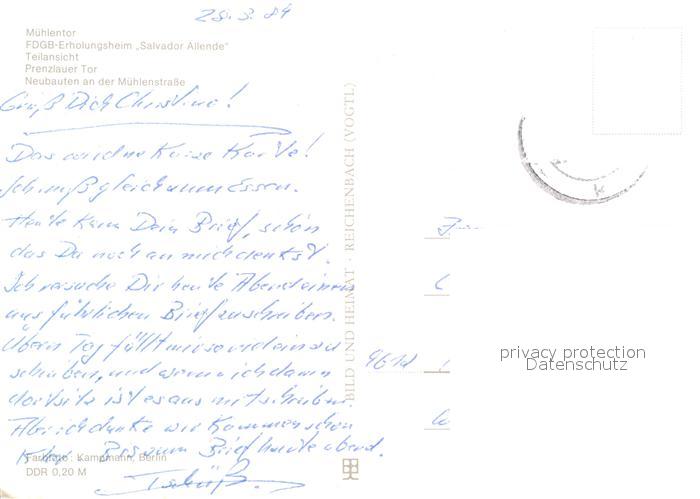 28.3.84
Mühlentor
FDGB-Erholungsheim „Salvador Allende"
Teilansicht
Prenzlauer Tor
Neubauten an der Mühlenstraße
Grüß Dich Christine!
Das wird ne Kurze Karte!
Ich muß gleich zum Essen.
Heute kam Dein Brief, schön
das Du noch an mich denkst.
Ich versuche Dir heute Abend einen
ausführlichen Brief zu schreiben.
Übern Tag fällt mir so viel ein zu
schreiben, und wenn ich dann
dort sitz ist es aus mit schreiben.
Aber ich denke wir Kommen schon
Bis zum Brief heute abend.
Tschüß.
Farbfoto: Kampmann, Berlin
DDR 0,20 M
BILD UND HEIMAT · REICHENBACH (VOGTL)
privacy protection
Datenschutz